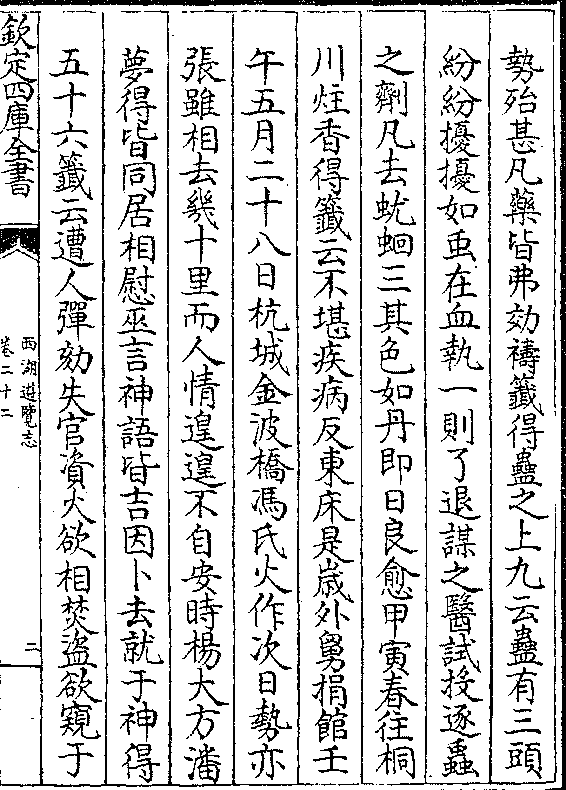 勢殆甚凡藥皆弗効禱籤得蠱之上九云蠱有三頭
紛紛擾擾如䖝在血執一則了退謀之醫試投逐蟲
之劑凡去蚘蛔三其色如丹即日良愈甲寅春往桐
川炷香得籤云不堪疾病反東床是歳外舅捐館壬
午五月二十八日杭城金波橋馮氏火作次日勢亦
張雖相去幾十里而人情遑遑不自安時楊大方潘
夢得皆同居相慰巫言神語皆吉因卜去就于神得
五十六籤云遭人彈劾失官資火欲相焚盗欲窺于
欽定四庫全書
西湖遊覽志
卷二十二
二